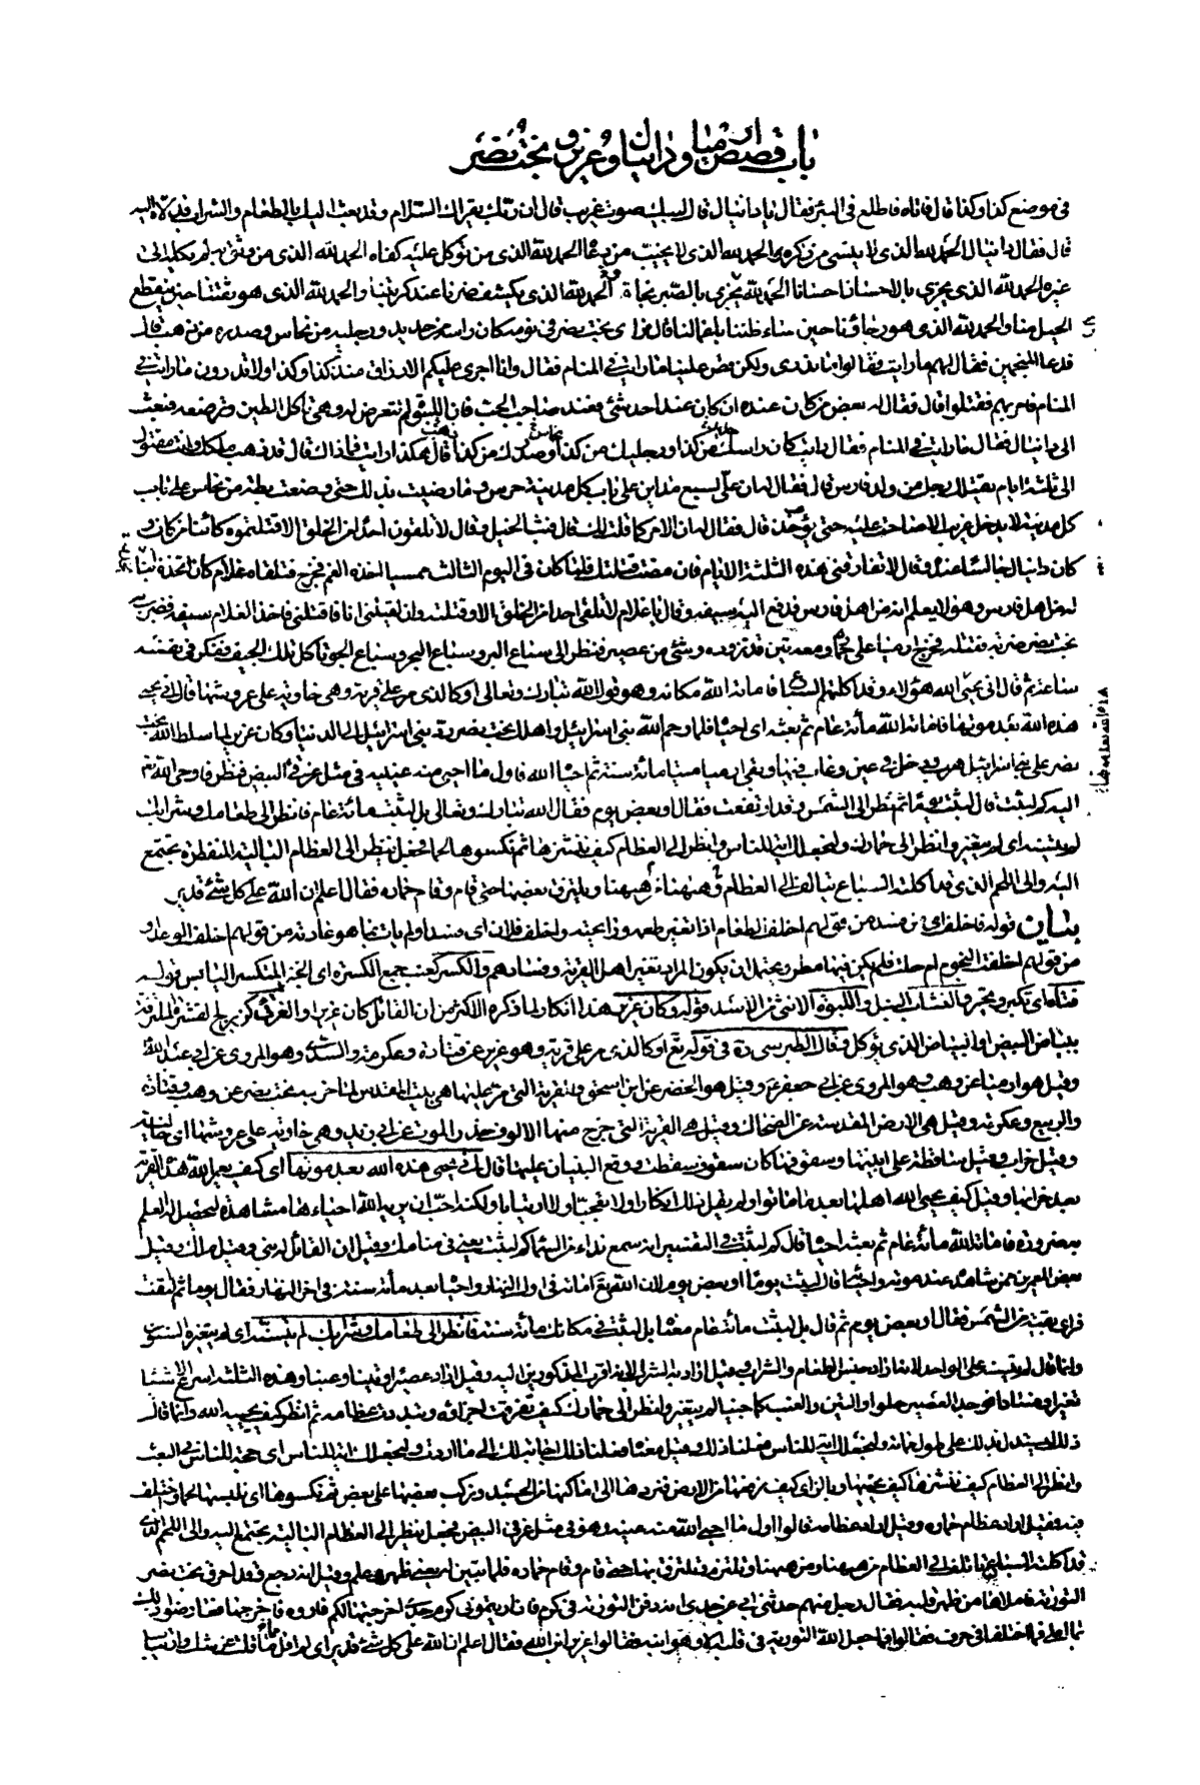 باب قصص ارميا ودانيال وعزير وبخت نصر
في موضع كذا وكذا قال فاتاه فاطلع في البئر فقال يا دانيال قال لبيك صوت غريب قال ان ربك يقرئك السلام وقد بعث اليك بالطعام والشراب فدلاه اليه
قال فقال دانيال الحمد لله الذي لا ينسى من ذكره والحمد لله الذي لا يخيب من دعاه الحمد لله الذي من توكل عليه كفاه الحمد لله الذي من وثق به لم يكله الى
غيره الحمد لله الذي يجزي بالاحسان احسانا الحمد لله الذي يجزي بالصبر نجاة والحمد لله الذي يكشف ضرنا عند كربتنا والحمد لله الذي هو ثقتنا حين ينقطع
الحيل منا والحمد لله الذي هو رجاؤنا حين ساء ظننا باعمالنا قال فراى بخت نصر في نومه كان راسه من حديد ورجليه من نحاس وصدره من ذهب قال
فدعا المنجمين فقال لهم ما رايت فقالوا ما ندري ولكن قص علينا ما رايت في المنام فقال وانا اجري عليكم الارزاق منذ كذا وكذا ولا تدرون ما رايت في
المنام فامر بهم فقتلوا قال فقال له بعض من كان عنده ان كان عند احد شيء فعند صاحب الجب فان اللبوة لم تتعرض له وهي تاكل الطين وترضعه فبعث
الى دانيال فقال ما رايت في المنام فقال رايت كان راسك من كذا ورجليك من كذا وصدرك من كذا قال هكذا رايت فما ذاك قال قد ذهب ملكك وانت مقتول
الى ثلثة ايام يقتلك رجل من ولد فارس قال فقال له ان علي لسبع مداين على باب كل مدينة حرس وما رضيت بذلك حتى وضعت بطة من نحاس على باب
كل مدينة لا يدخل غريب الا صاحت عليه حتى يؤخذ قال فقال له ان الامر كما قلت لك قال فبث الخيل وقال لا تلقون احدا من الخلق الا قتلتموه كائنا من كان و
كان دانيال جالسا عنده وقال لا تفارقني هذه الثلثة الايام فان مضت قتلتك فلما كان في اليوم الثالث ممسيا اخذه الغم فخرج فتلقاه غلام كان اتخذه ابنا
من اهل فارس وهو لا يعلم انه من اهل فارس فدفع اليه سيفه وقال يا غلام لا تلقى احدا من الخلق الا وقتلته وان لقيتني انا فاقتلني فاخذ الغلام سيفه فضرب به
بخت نصر ضربة فقتله فخرج ارميا على حماره ومعه تين قد تزوده وشيء من عصير فنظر الى سباع البر وسباع البحر وسباع الجو تاكل تلك الجيف ففكر في نفسه
ساعة ثم قال انى يحيي الله هؤلاء وقد اكلتهم السباع فاماته الله مكانه وهو قول الله تبارك وتعالى او كالذي مر على قرية وهي خاوية على عروشها قال انى يحيي
هذه الله بعد موتها فاماته الله مائة عام ثم بعثه اي احياه فلما رحم الله بني اسرائيل واهلك بخت نصر رد بني اسرائيل الى الدنيا وكان عزير لما سلط الله بخت
نصر على بني اسرائيل هرب ودخل في عين وغاب فيها وبقي ارميا ميتا مائة سنة ثم احياه الله فاول ما احيي منه عينيه في مثل غرقئ البيض فنظر فاوحى الله تع
اليه كم لبثت قال لبثت يوما ثم نظر الى الشمس وقد ارتفعت فقال او بعض يوم فقال الله تبارك وتعالى بل لبثت مائة عام فانظر الى طعامك وشرابك
لم يتسنه اي لم يتغير وانظر الى حمارك ولنجعلك اية للناس وانظر الى العظام كيف ننشزها ثم نكسوها لحما فجعل ينظر الى العظام البالية المنفطرة تجتمع
اليه والى اللحم الذي قد اكلته السباع يتالف الى العظام من هيهنا وهيهنا ويلتزق بعضها حتى قام وقام حماره فقال اعلم ان الله على كل شيء قدير
بيان قوله فاخلف اي فسد من قولهم اخلف الطعام اذا تغير طعمه ورايحته واخلف فلان اي فسد او لم يات بما هو عادته من قولهم اخلف الوعد او
من قولهم اخلفت النجوم امحلت فلم يكن فيها مطر ويحتمل ان يكون المراد تغير اهل القرية وفسادهم والكسر كعنب جمع الكسرة اي الخبز المنكسر اليابس قوله
فتاه اي تكبر وتحير والنشاب النبل واللبوة الانثى من الاسد قوله وكان عزير هذا انكار لما ذكره الاكثر من ان القائل كان عزيرا والغرقئ كزبرج القشرة الملتزقة
ببياض البيض او البياض الذي يؤكل وقال الطبرسي ره في قوله تع او كالذي مر على قرية وهو عزير عن قتادة وعكرمة والسدي وهو المروي عن ابي عبد الله
وقيل هو ارميا عن وهب وهو المروي عن ابي جعفر ع وقيل هو الخضر عن ابن اسحق والقرية التي مر عليها هي بيت المقدس لما خربه بخت نصر عن وهب وقتادة
والربيع وعكرمة وقيل هي الارض المقدسة عن الضحاك وقيل هي القرية التي خرج منها الالوف حذر الموت عن ابن زيد وهي خاوية على عروشها اي خالية
وقيل خراب وقيل ساقطة على ابنيتها وسقوفها كان سقوفها سقطت ووقع البنيان عليها قال انى يحيي هذه الله بعد موتها اي كيف يعمر الله هذه القرية
بعد خرابها وقيل كيف يحيي الله اهلها بعد ما ماتوا ولم يقل ذلك انكارا ولا تعجبا ولا ارتيابا ولكنه احب ان يريه الله احياءها مشاهدة ليحصل له العلم
به ضرورة فاماته الله مائة عام ثم بعثه احياه قال كم لبثت في التفسير انه سمع نداء من السماء كم لبثت يعني في منامك وقيل ان القائل له نبي وقيل ملك وقيل
بعض المعمرين ممن شاهده عند موته واحيائه قال لبثت يوما او بعض يوم لان الله تع اماته في اول النهار واحياه بعد مائة سنة في اخر النهار فقال يوما ثم التفت
فراى بقية من الشمس فقال او بعض يوم ثم قال بل لبثت مائة عام معناه بل لبثت في مكانك مائة سنة فانظر الى طعامك وشرابك لم يتسنه اي لم يتغيره السنون
وانما قال لم يتسنه على الواحد لانه اراد جنس الطعام والشراب وقيل اراد به الشراب لانه اقرب المذكورين اليه وقيل اراد عصيرا وتينا وعنبا وهذه الثلثة اسرع الاشياء
تغيرا وفسادا فوجد العصير حلوا والتين والعنب كما جنيا لم يتغير وانظر الى حمارك كيف تفرقت اجزاؤه وتبددت عظامه ثم انظر كيف يحييه الله وانما قال
ذلك ليستدل بذلك على طول مماته ولنجعلك اية للناس فعلنا ذلك وقيل معناه فعلنا ذلك اجابة لك الى ما اردت ولنجعلك اية للناس اي حجة للناس في البعث
وانظر الى العظام كيف ننشرها كيف نحييها وبالزاي كيف نرفعها من الارض فنردها الى اماكنها من الجسد ونركب بعضها على بعض ثم نكسوها اي نلبسها لحما واختلف
فيه فقيل اراد عظام حماره وقيل اراد عظامه قالوا اول ما احيى الله منه عينه وهو في مثل غرقئ البيض فجعل ينظر الى العظام البالية تجتمع اليه والى اللحم الذي
قد اكلته السباع تاتلف الى العظام من هيهنا ومن هيهنا وتلتزم وتلتزق بها حتى قام وقام حماره فلما تبين له يعني ظهر وعلم وقيل انه رجع وقد احرق بخت نصر
التورية فاملاها من ظهر قلبه فقال رجل منهم حدثني ابي عن جدي انه دفن التورية في كرم فان اريتموني كرم جدي اخرجتها لكم فاروه فاخرجها فعارضوا ذلك
بما املى فما اختلفا في حرف فقالوا ما جعل الله التورية في قلبه الا وهو ابنه فقالوا عزير ابن الله فقال اعلم ان الله على كل شيء قدير اي لم اقل ما قلت عن شك وارتياب